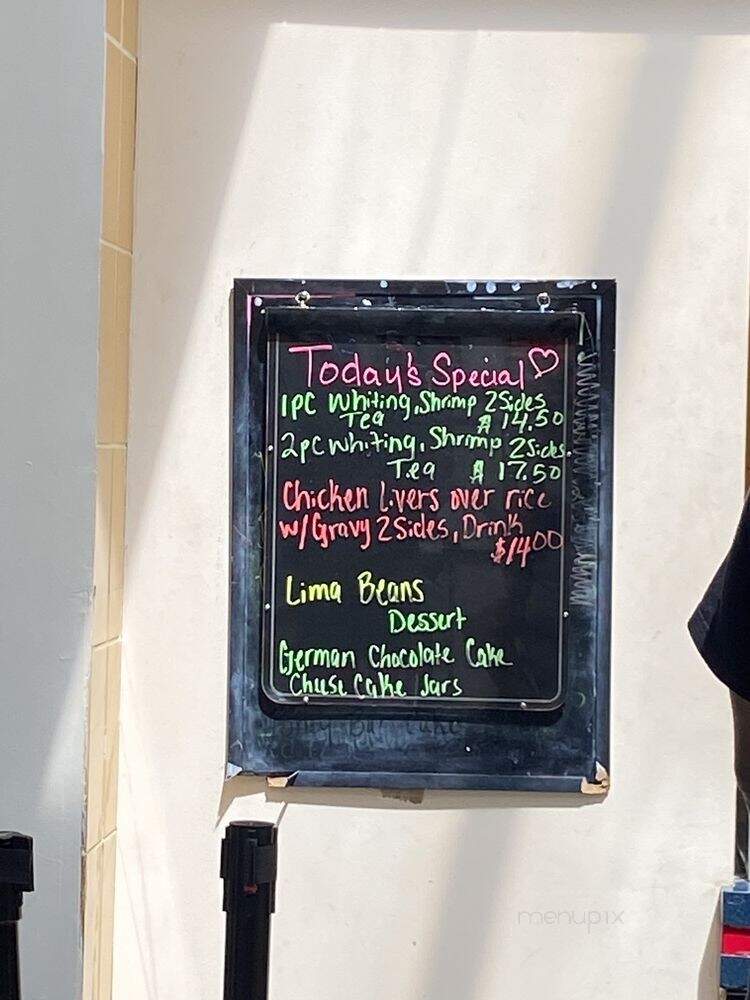 Today's Special
1pc Whiting, Shrimp 2 Sides
Tea $ 14.50
2pc Whiting, Shrimp 2 Sides
Tea $ 17.50
Chicken Livers over rice
w/Gravy 2 Sides, Drink
$14.00
Lima Beans
Dessert
German Chocolate Cake
Cheese Cake Jars
menupix